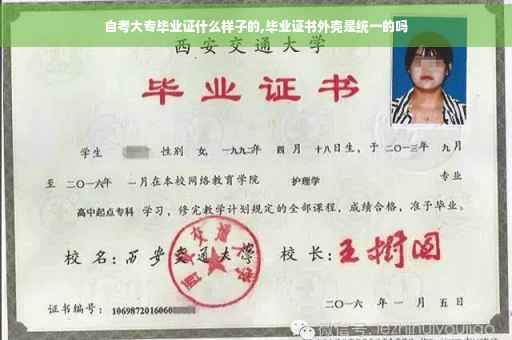 自考大专毕业证什么样子的,毕业证书外壳是统一的吗
西安交通大学
毕业证书
学生 性别 女, 一九九二年 四月 十八日生, 于二〇一三年 九月
至 二〇一六年 一月在本校网络教育学院 护理学 专业
高中起点专科 学习, 修完教学计划规定的全部课程, 成绩合格, 准予毕业。
校名: 西安交通大学 校长: 王树国
西安交通大学
证书编号: 1069872016060
二〇一六年 一月 五日
微信号: jezhihuiyoujiao